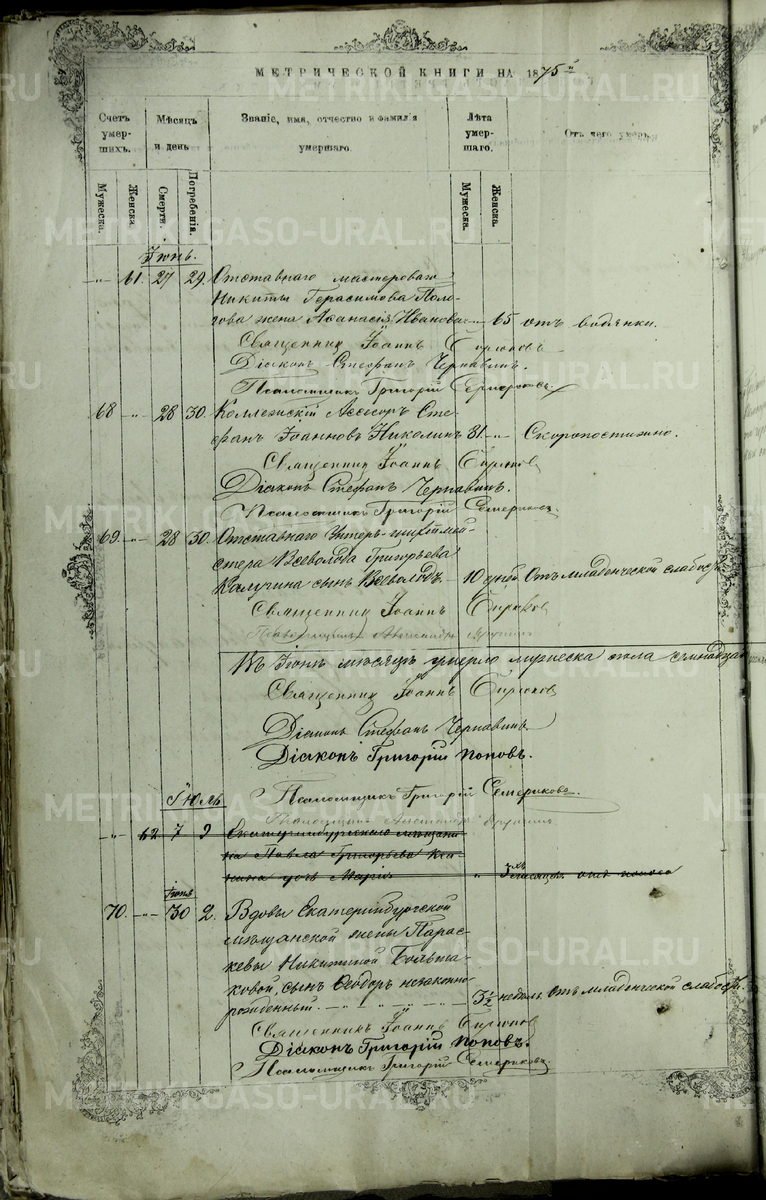 МЕТРИЧЕСКОЙ КНИГИ НА 1875 й
Счетъ умершихъ.
Мѣсяцъ и день
Званіе, имя, отчество и фамилія умершаго.
Лѣта умершаго.
Отъ чего умеръ.
Мужеска. Женска. Смерти. Погребенія. Мужеска. Женска.
Іюнь.
61. 27 29. Отставнаго мастероваго
Никиты Герасимова
жена Аѳанасія Иванова 65 отъ водянки.
Священникъ Іоаннъ Бирюковъ
Діаконъ Стефанъ Чернавинъ.
Псаломщикъ Григорій Семериковъ
68 28 30. Коллежскій Ассесоръ Сте-
фанъ Іоанновъ Николинъ 81. Скоропостижно.
Священникъ Іоаннъ Бирюковъ
Діаконъ Стефанъ Чернавинъ.
Псаломщикъ Григорій Семериковъ
69. 28 30. Отставнаго Унтеръ-шихтмей-
стера Всеволода Григорьева
Калугина сынъ Всеволодъ 10 дней Отъ младенческой слабос.
Священникъ Іоаннъ Бирюковъ
Въ Іюнѣ мѣсяцѣ умерло мужеска пола
Священникъ Іоаннъ Бирюковъ
Діаконъ Стефанъ Чернавинъ
Діаконъ Григорій Поповъ.
Псаломщикъ Григорій Семериковъ.
Іюль
62 7 9 Екатеринбургскаго мѣщани-
на Павла Григорьева
дочь Марія мѣсяцевъ отъ поноса
Іюня
70. 30 2. Вдовы Екатеринбургской
мѣщанской жены Парас-
кевы Никитиной Больша-
ковой, сынъ Ѳеодоръ незаконно-
рожденный. 3½ недѣль Отъ младенческой слабос.
Священникъ Іоаннъ Бирюковъ
Діаконъ Григорій Поповъ.
Псаломщикъ Григорій Семериковъ.
METRIKI.GASO-URAL.RU